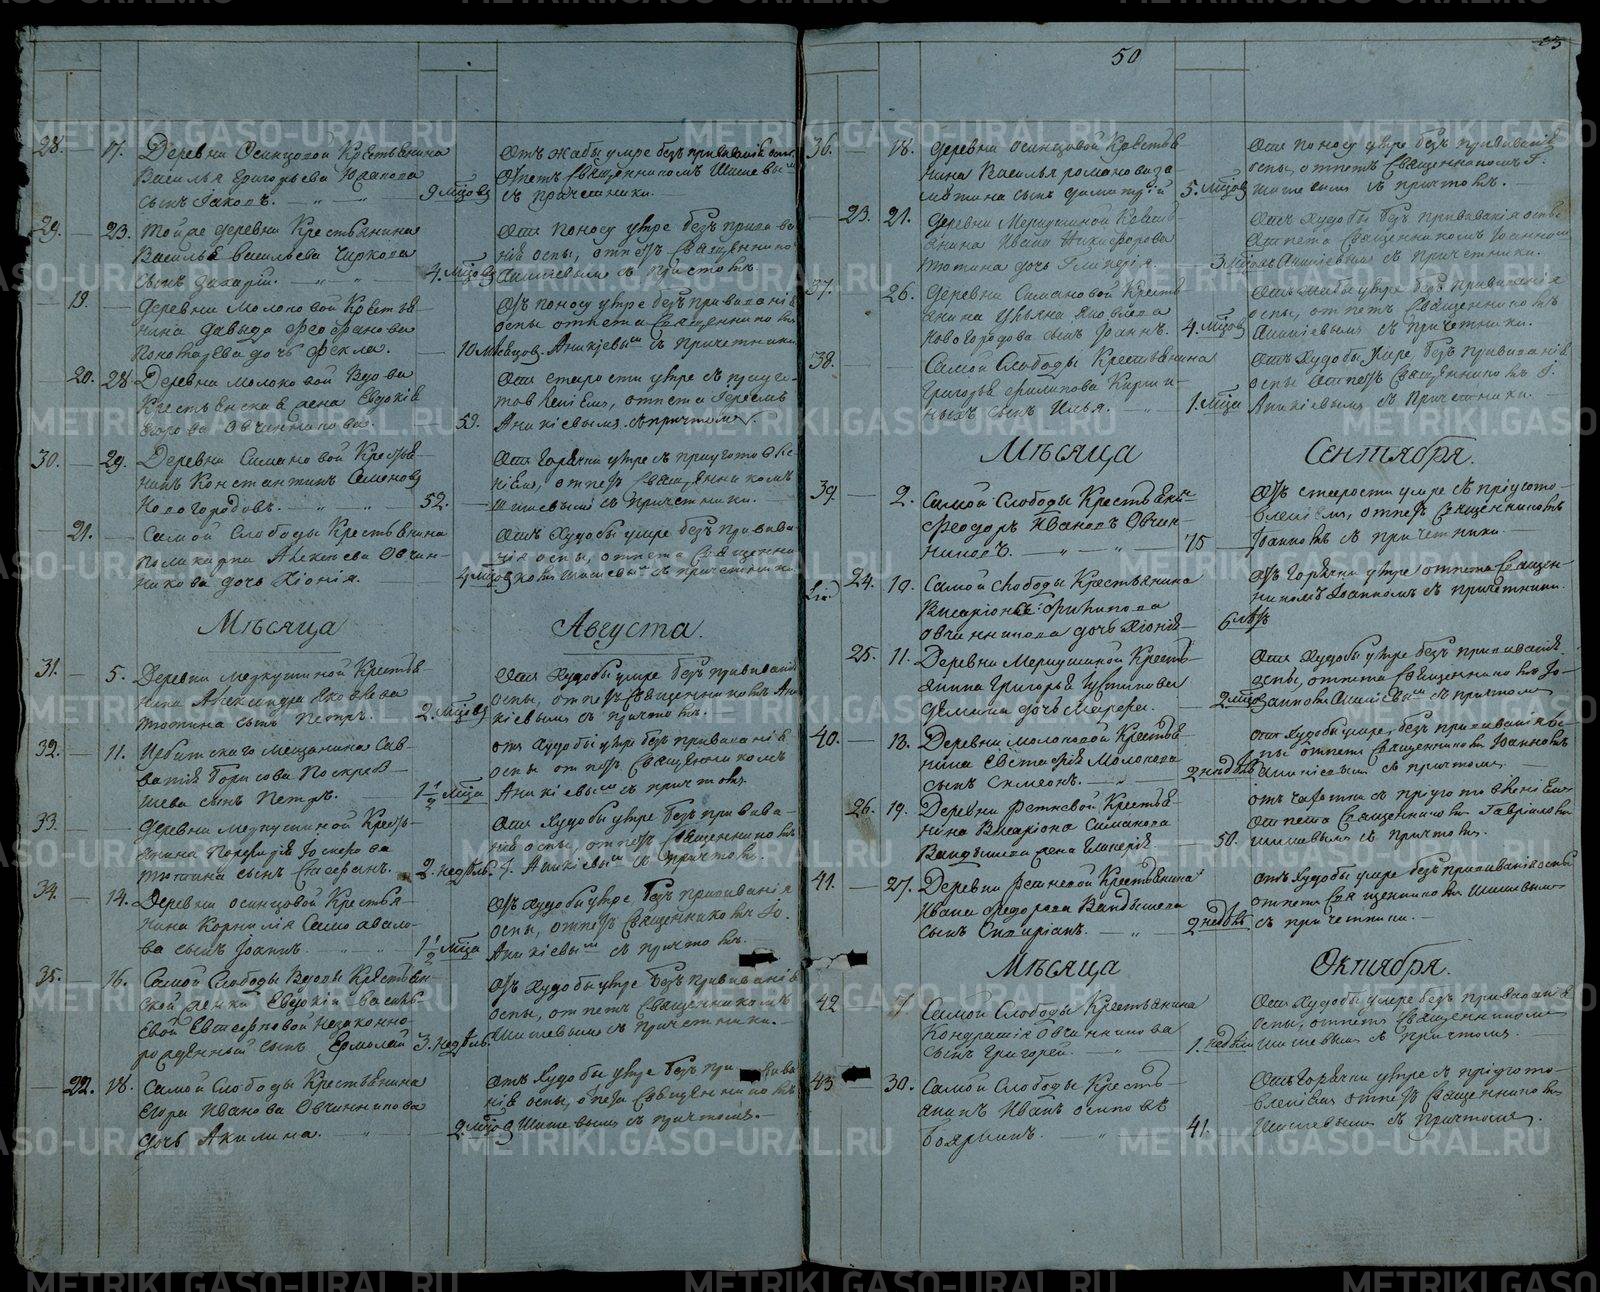 28. 17. Деревни Осинцовой Крестьянина
Василья Григорьева
сынъ Iаковъ. 9 мцовъ
Отъ жабы умре безъ прививанiя оспы
Отпетъ Священникомъ Шишевымъ
съ причетники.
29. 23. Той же деревни Крестьянина
Василья Васильева Чиркова
сынъ Захарiй. 4. мцовъ
Отъ поносу умре безъ привива
нiя оспы, отпетъ Священнико
съ причтомъ
19. Деревни Молоковой Крестья-
нина Давыда Феофанова
Понотарева дочь Фекла. 10 Месяцовъ.
Отъ поносу умре безъ прививанiя
оспы отпета Священникомъ
Аникiевымъ съ причетники
20. 28 Деревни Молоковой Вдова
Крестьянская жена Евдокiя
Егорова Овчинникова. 59.
Отъ старости умре съ приуго-
товленiемъ, отпета Iереемъ
Аникiевымъ съ причтомъ.
30. 29. Деревни Симановой Крестья-
нинъ Константинъ Семеновъ
Новогородовъ. 52.
Отъ горячки умре съ приуготовле-
нiемъ, отпетъ Священникомъ
Шишевымъ съ причетники.
21. Самой Слободы Крестьянина
Поликарпа Алексеева Овчин-
никова дочь Хiонiя. 4 мцовъ
Отъ Худобы умре безъ привива-
нiя оспы, отпета Священни
комъ Шишевымъ съ причетники
Мѣсяца Августа.
31. 5. Деревни Меркушиной Крестья
нина Александра Яковлева
Тютина сынъ Петръ. 2. мцовъ
Отъ Худобы умре безъ прививанiя
оспы, отпетъ Священникомъ Ани
кiевымъ съ причтомъ.
32. 11. Ирбитскаго Мещанина Сав-
ватiя Борисова Поскреб-
шева сынъ Петръ. 1 1/2 мца
отъ Худобы умре безъ прививанiя
оспы отпетъ Священникомъ
Аникiевымъ съ причтомъ
33. Деревни Меркушиной Кресть-
янина Порфирiя Iосифова
Тютина сынъ Стефанъ. 2. недѣль.
Отъ Худобы умре безъ привива-
нiя оспы, отпетъ Священникомъ
I. Аникiевымъ съ причтомъ.
34. 14. Деревни Осинцовой Крестья-
нина Корнилiя Самовало-
ва сынъ Iоаннъ. 1 1/2 мца
Отъ худобы умре безъ прививанiя
оспы, отпетъ Священникомъ Iо.
Аникiевымъ съ причтомъ.
35. 16. Самой Слободы Вдовы Крестьян-
ской женки Евдокiи Василь-
евой Евстефеевой незаконно-
рожденный сынъ Ермолай 3. недѣль
Отъ худобы умре безъ прививанiя
оспы, отпетъ Священникомъ
Шишевымъ съ причетники.
22. 18. Самой Слободы Крестьянина
Егора Иванова Овчинникова
дочь Акилина. 2 мцовъ
Отъ Худобы умре безъ привива
нiя оспы, отпета Священникомъ
Шишевымъ съ причтомъ.
50
36. 18. Деревни Осинцовой Крестья
нина Василья Романова
сынъ Димитрiй 5. мцовъ
Отъ поносу умре безъ прививанiя
оспы, отпетъ Священникомъ Г.
Шишевымъ съ причтомъ.
23. 21. Деревни Меркушиной Кресть-
янина Ивана Никифорова
Тютина дочь Гликерiя. 3 мцовъ
Отъ худобы безъ прививанiя оспы
Отпета Священникомъ Iоанномъ
Аникiевымъ съ причетники.
37. 26. Деревни Симановой Кресть-
янина Ульяна Яковлева
Новогородова сынъ Iоаннъ. 4. мцовъ
Отъ жабы умре безъ прививанiя
оспы, отпетъ Священникомъ
Аникiевымъ съ причетники.
38. Самой Слободы Крестьянина
Григорья Филипова Кирги-
ныхъ сынъ Илья. 1. мца
Отъ Худобы умре, безъ прививанiя
оспы отпетъ Священникомъ I.
Аникiевымъ съ причетники.
Мѣсяца Сентября.
39. 2. Самой Слободы Крестьянинъ
Феодоръ Ивановъ Овчин-
никовъ. 75
Отъ старости умре съ прiугото-
вленiемъ, отпетъ Священникомъ
Iоанномъ съ причетники.
24. 10. Самой Слободы Крестьянина
Висарiона Филипова
Овчинникова дочь Хiонiя 6 лѣтъ
Отъ Горячки умре отпета Священ-
никомъ Iоанномъ съ причетники.
25. 11. Деревни Меркушиной Кресть-
янина Григорья Устинова
Демина дочь Марфа. 2 мцовъ
Отъ Худобы умре безъ прививанiя
оспы, отпета Священникомъ Iо-
анномъ Аникiевымъ съ причтомъ
40. 13. Деревни Молоковой Крестья-
нина Евстафiя Молокова
сынъ Симеонъ. 2 недѣль
отъ худобы умре, безъ прививанiя ос-
пы отпетъ Священникомъ Iоанномъ
Аникiевымъ съ причтомъ
26. 19. Деревни Фетневой Крестья-
нина Висарiона Симакова
Вандышева жена Гликерiя 50.
отъ чахотки съ прiуготовленiемъ
Отпета Священникомъ Гаврiиломъ
Шишевымъ съ причтомъ.
41. 27. Деревни Фетневой Крестьянина
Ивана Федорова Вандышева
сынъ Кипрiанъ. 2 недѣль
отъ Худобы умре безъ прививанiя оспы
отпетъ Священникомъ Шишевымъ
съ причетники.
Мѣсяца Октября.
42 7. Самой Слободы Крестьянина
Кондратiя Овчинникова
сынъ Григорей. 1. недѣли
Отъ Худобы умре безъ прививанiя
оспы, отпетъ Священникомъ
Шишевымъ съ причтомъ.
43 30. Самой Слободы Кресть-
янинъ Иванъ Осиповъ
Бояркинъ. 41.
Отъ Горячки умре съ прiугото-
вленiемъ отпетъ Священникомъ
Шишевымъ съ Причтомъ.
METRIKI.GASO-URAL.RU